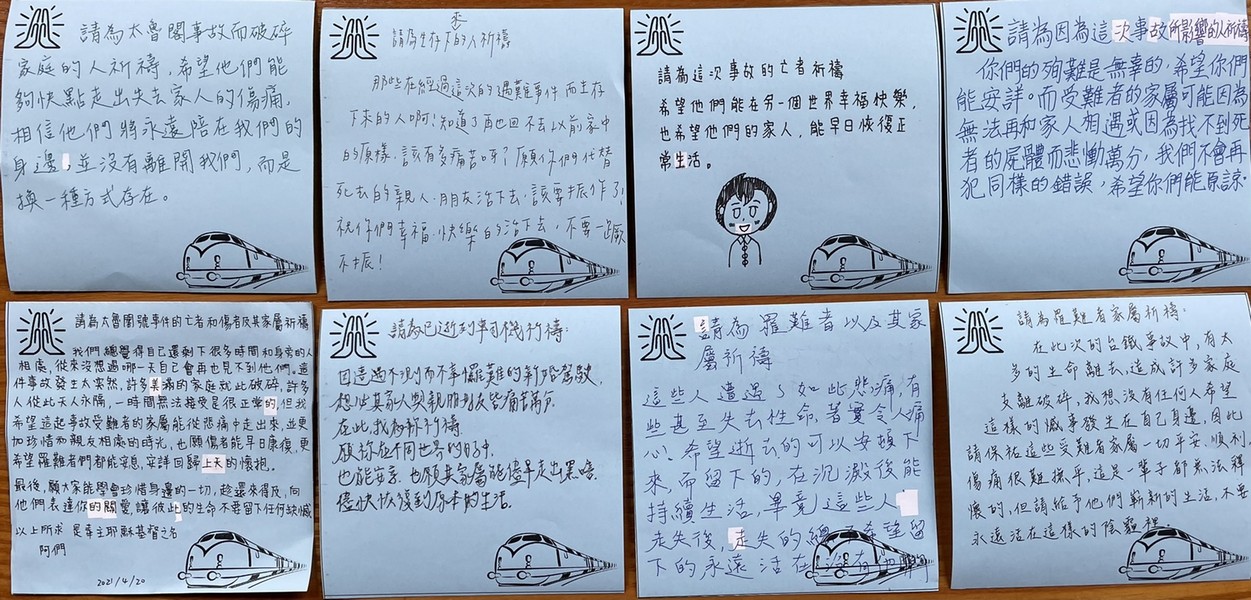 請為太魯閣事故而破碎
家庭的人祈禱,希望他們能
夠快點走出失去家人的傷痛,
相信他們將永遠陪在我們的
身邊,並沒有離開我們,而是
換一種方式存在。
請為生存下來的人祈禱
那些在經過這次的遇難事件而生存
下來的人啊!知道了再也回不去以前家中
的原樣,該有多痛苦呀?願你們代替
死去的親人、朋友活下去,該要振作了!
祝你們幸福、快樂的活下去,不要一蹶
不振!
請為這次事故的亡者祈禱
希望他們能在另一個世界幸福快樂,
也希望他們的家人,能早日恢復正
常生活。
請為因為這次事故所影響的人祈禱
你們的殉難是無辜的,希望你們
能安詳。而受難者的家屬可能因為
無法再和家人相遇或因為找不到死
者的屍體而悲慟萬分,我們不會再
犯同樣的錯誤,希望你們能原諒。
請為太魯閣號事件的亡者和傷者及其家屬祈禱
我們總覺得自己還剩下很多時間和身旁的人
相處,從來沒想過哪一天自己會再也見不到他們。這
件事故發生太突然,許多美滿的家庭就此破碎,許多
人從此天人永隔,一時間無法接受是很正常的,但我
希望這起事故受難者的家屬能從悲痛中走出來,並更
加珍惜和親友相處的時光,也願傷者能早日康復,更
希望罹難者們都能安息,安詳回歸上天的懷抱。
最後,願大家能學會珍惜身邊的一切,趁還來得及,向
他們表達你的關愛,讓彼此的生命不要留下任何缺憾
以上所求 是奉主耶穌基督之名
阿們
2021/4/20
請為已逝列車司機祈禱:
因遭遇不測而不幸罹難的新婚駕駛,
想必其家人與親朋好友皆痛苦萬分,
在此我為你祈禱
願你在不同世界的日子中,
也能安息,也願其家屬能儘早走出黑暗,
儘快恢復到原本的生活。
請為罹難者以及其家
屬祈禱
這些人遭遇了如此悲痛,有
些甚至失去性命,著實令人痛
心。希望逝去的可以安頓下
來,而留下的,在沉澱後能
持續生活,畢竟這些人
走失後,走失的總希望留
下的永遠活在沒有
請為罹難者家屬祈禱:
在此次的台鐵事故中,有太
多的生命離去,造成許多家庭
支離破碎,我想沒有任何人希望
這樣的憾事發生在自己身邊,因此
請保祐這些受難者家屬一切平安、順利
傷痛很難撫平,這是一輩子都無法釋
懷的,但請給予他們嶄新的生活,不要
永遠活在這樣的陰霾裡。